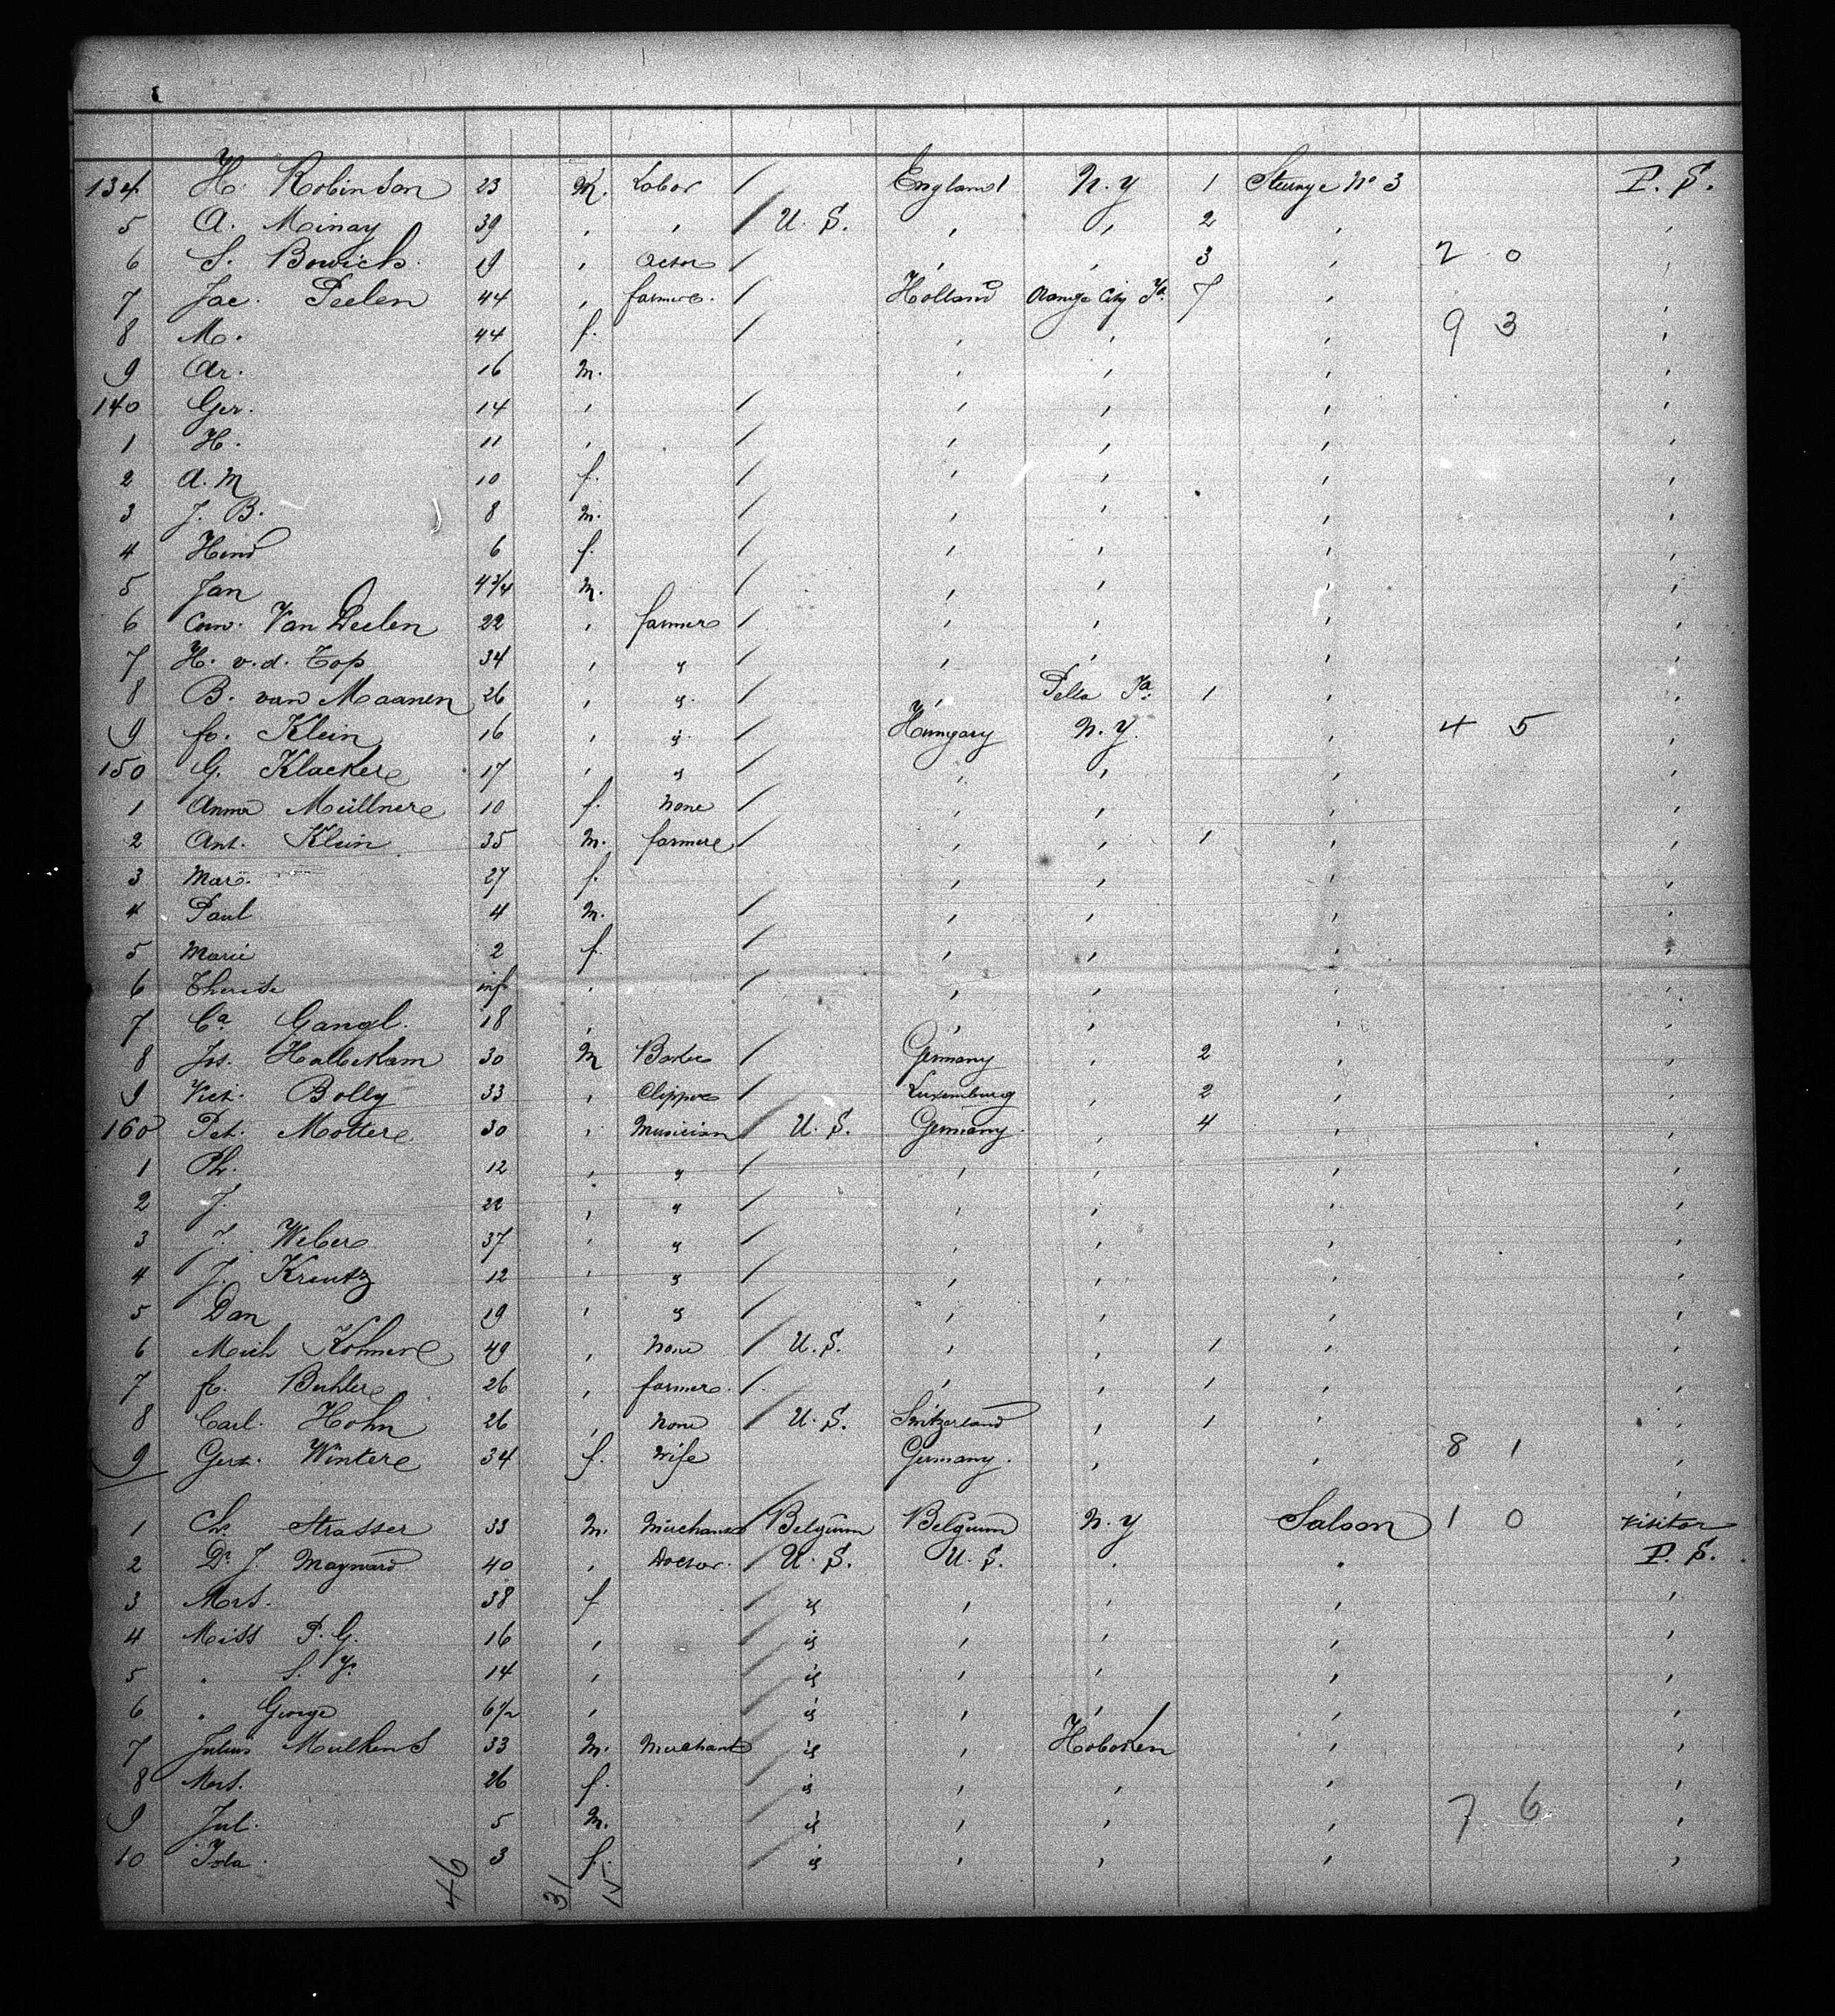 134 H. Robinson 23 M. Labor / England N.Y 1 Steerage No 3 P. S.
5 A. Minay 39 , , / U. S. , , 2 , ,
6 S. Bowick 19 , Actor / , , 3 , 2 0 ,
7 Jac. Peelen 44 , farmer. / Holland Orange City Ia. 7 , ,
8 M. 44 f. / , , , 9 3 ,
9 Ar. 16 M. , , , ,
140 Ger. 14 , / , , , ,
1 H. 11 , / , , , ,
2 A. M 10 f. / , , , ,
3 J. B. 8 M. / , , , ,
4 Hend 6 f. / , , , ,
5 Jan 4 3/4 M. / , , , ,
6 Corn. Van Deelen 22 , farmer / , , , ,
7 H. v.d. Top 34 , " / , , , ,
8 B. van Maanen 26 , " / , Pella Ia. 1 , ,
9 fr. Klein 16 , " / Hungary N.Y. , 4 5 ,
150 G. Klacker 17 , " / , , , ,
1 Anna Müllner 10 f. none / , , , ,
2 Ant. Klein 35 M. farmer / , , 1 , ,
3 Mar. 27 f. , , , ,
4 Paul 4 M. / , , , ,
5 Marie 2 f. / , , , ,
6 Therese inf , / , , , ,
7 Ca. Gangl. 18 , , , , ,
8 Jos. Halbekam 30 M Baker / Germany , 2 , ,
9 Vict. Bolly 33 , Clipper / Luxemburg , 2 , ,
160 Pet. Motter 30 , Musician / U. S. Germany. , 4 , ,
1 Ph. 12 , " / , , , ,
2 J. 22 , " / , , , ,
3 J. Weber 37 , " / , , , ,
4 J. Kreutz 12 , " / , , , ,
5 Dan 19 , " / , , , ,
6 Mich Kohner 49 , None / U. S. , , 1 , ,
7 fr. Buhler 26 , farmer. / , , 1 , ,
8 Carl. Hohn 26 , none / U. S. Switzerland , 1 , ,
9 Gert. Winter 34 f. wife Germany. , , 8 1 ,
1 Ch. Strasser 33 M. Merchant / Belgium Belgium N.Y Saloon 1 0 visitor
2 Dr. J. Maynard 40 , Doctor. / U. S. U. S. , " P. S.
3 Mrs. 38 f / " , , , ,
4 Miss P. G. 16 , / " , , , ,
5 " S. Y. 14 , / " , , , ,
6 " George 6 1/2 , / " , , , ,
7 Julius Mulkens 33 M. Merchant / " , Hoboken , ,
8 Mrs. 26 f. / " , , , ,
9 Jul. 5 M. / " , , , 7 6 ,
10 Ida. 3 f. / " , , , ,
46 31 15